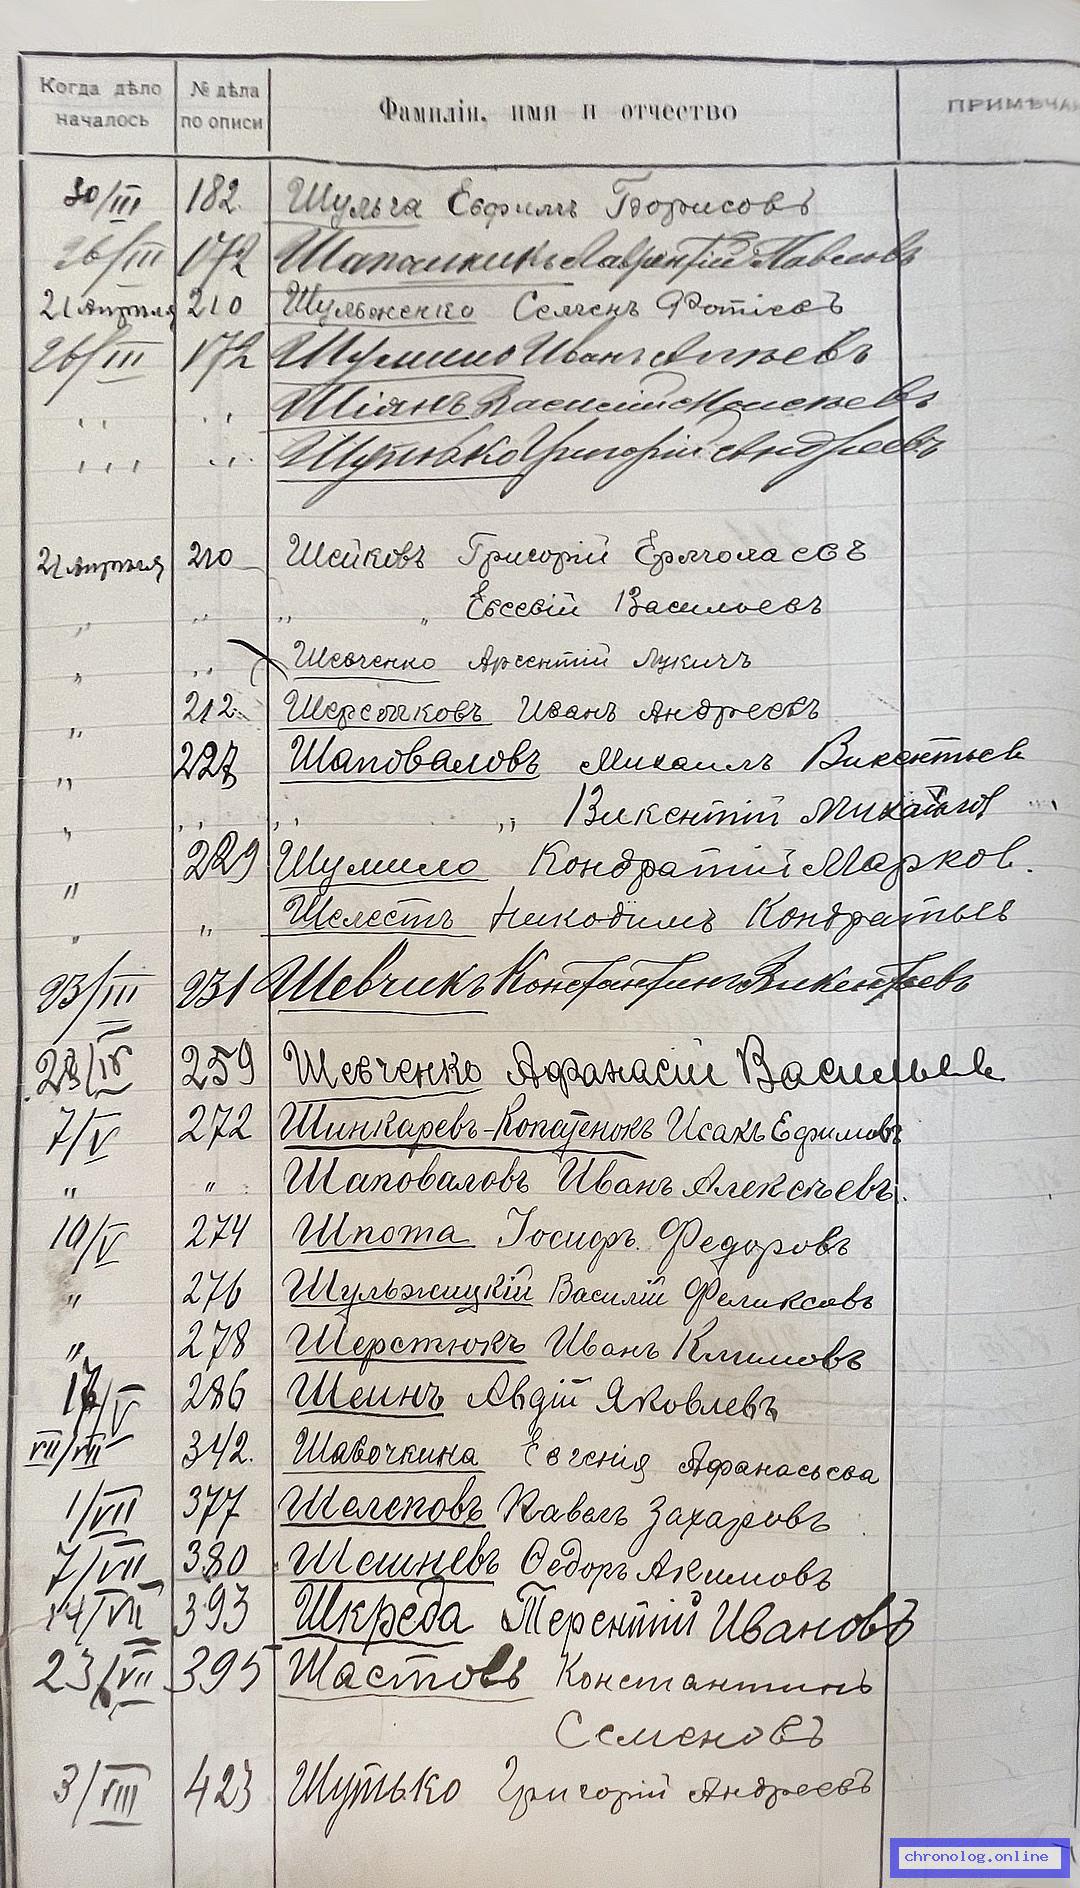 Когда дѣло началось № дѣла по описи Фамилія, имя и отчество ПРИМѢЧА
30/III 182. Шульга Евфимъ Борисовъ
26/III 172 Лаврентій Павловъ
21 Апрѣля 210 Шульженко Семенъ Фотіевъ
26/III 172 Шумило Иванъ
" " Шіянъ Василій Моисеевъ
" " Шутько Григорій Андреевъ
21 Апрѣля 210 Шейковъ Григорій Ермолаевъ
" " " " Евсевій Васильевъ
" " Шевченко Арсентій Лукичъ
" 212 Шерстюковъ Иванъ Андреевъ
" 227 Шаповаловъ Михаилъ Викентьев
" " " " Викентій Михайлов
" 229 Шумило Кондратій Марков.
" " Шелестъ Никодимъ Кондратьев
23/III 231 Шевчикъ Константинъ Викентьевъ
28/IV 259 Шевченко Афанасій Васильев
7/V 272 Шинкаревъ-Копатенокъ Исакъ Ефимовъ
" " Шаповаловъ Иванъ Алексѣевъ.
10/V 274 Шпота Іосифъ Федоровъ
" 276 Шульжицкій Василій Феликсовъ
" 278 Шерстюкъ Иванъ Климовъ
17/V 286 Шеинъ Авдій Яковлевъ
342. Шавочкина Евгенія Афанасьева
1/VII 377 Шелеповъ Павелъ Захаровъ
7/VII 380 Ѳедоръ Акимовъ
14/VII 393 Шкреба Терентій Ивановъ
23/VII 395 Шастовъ Константинъ
Семеновъ
3/VIII 423 Шутько Григорій Андреевъ
chronolog.online